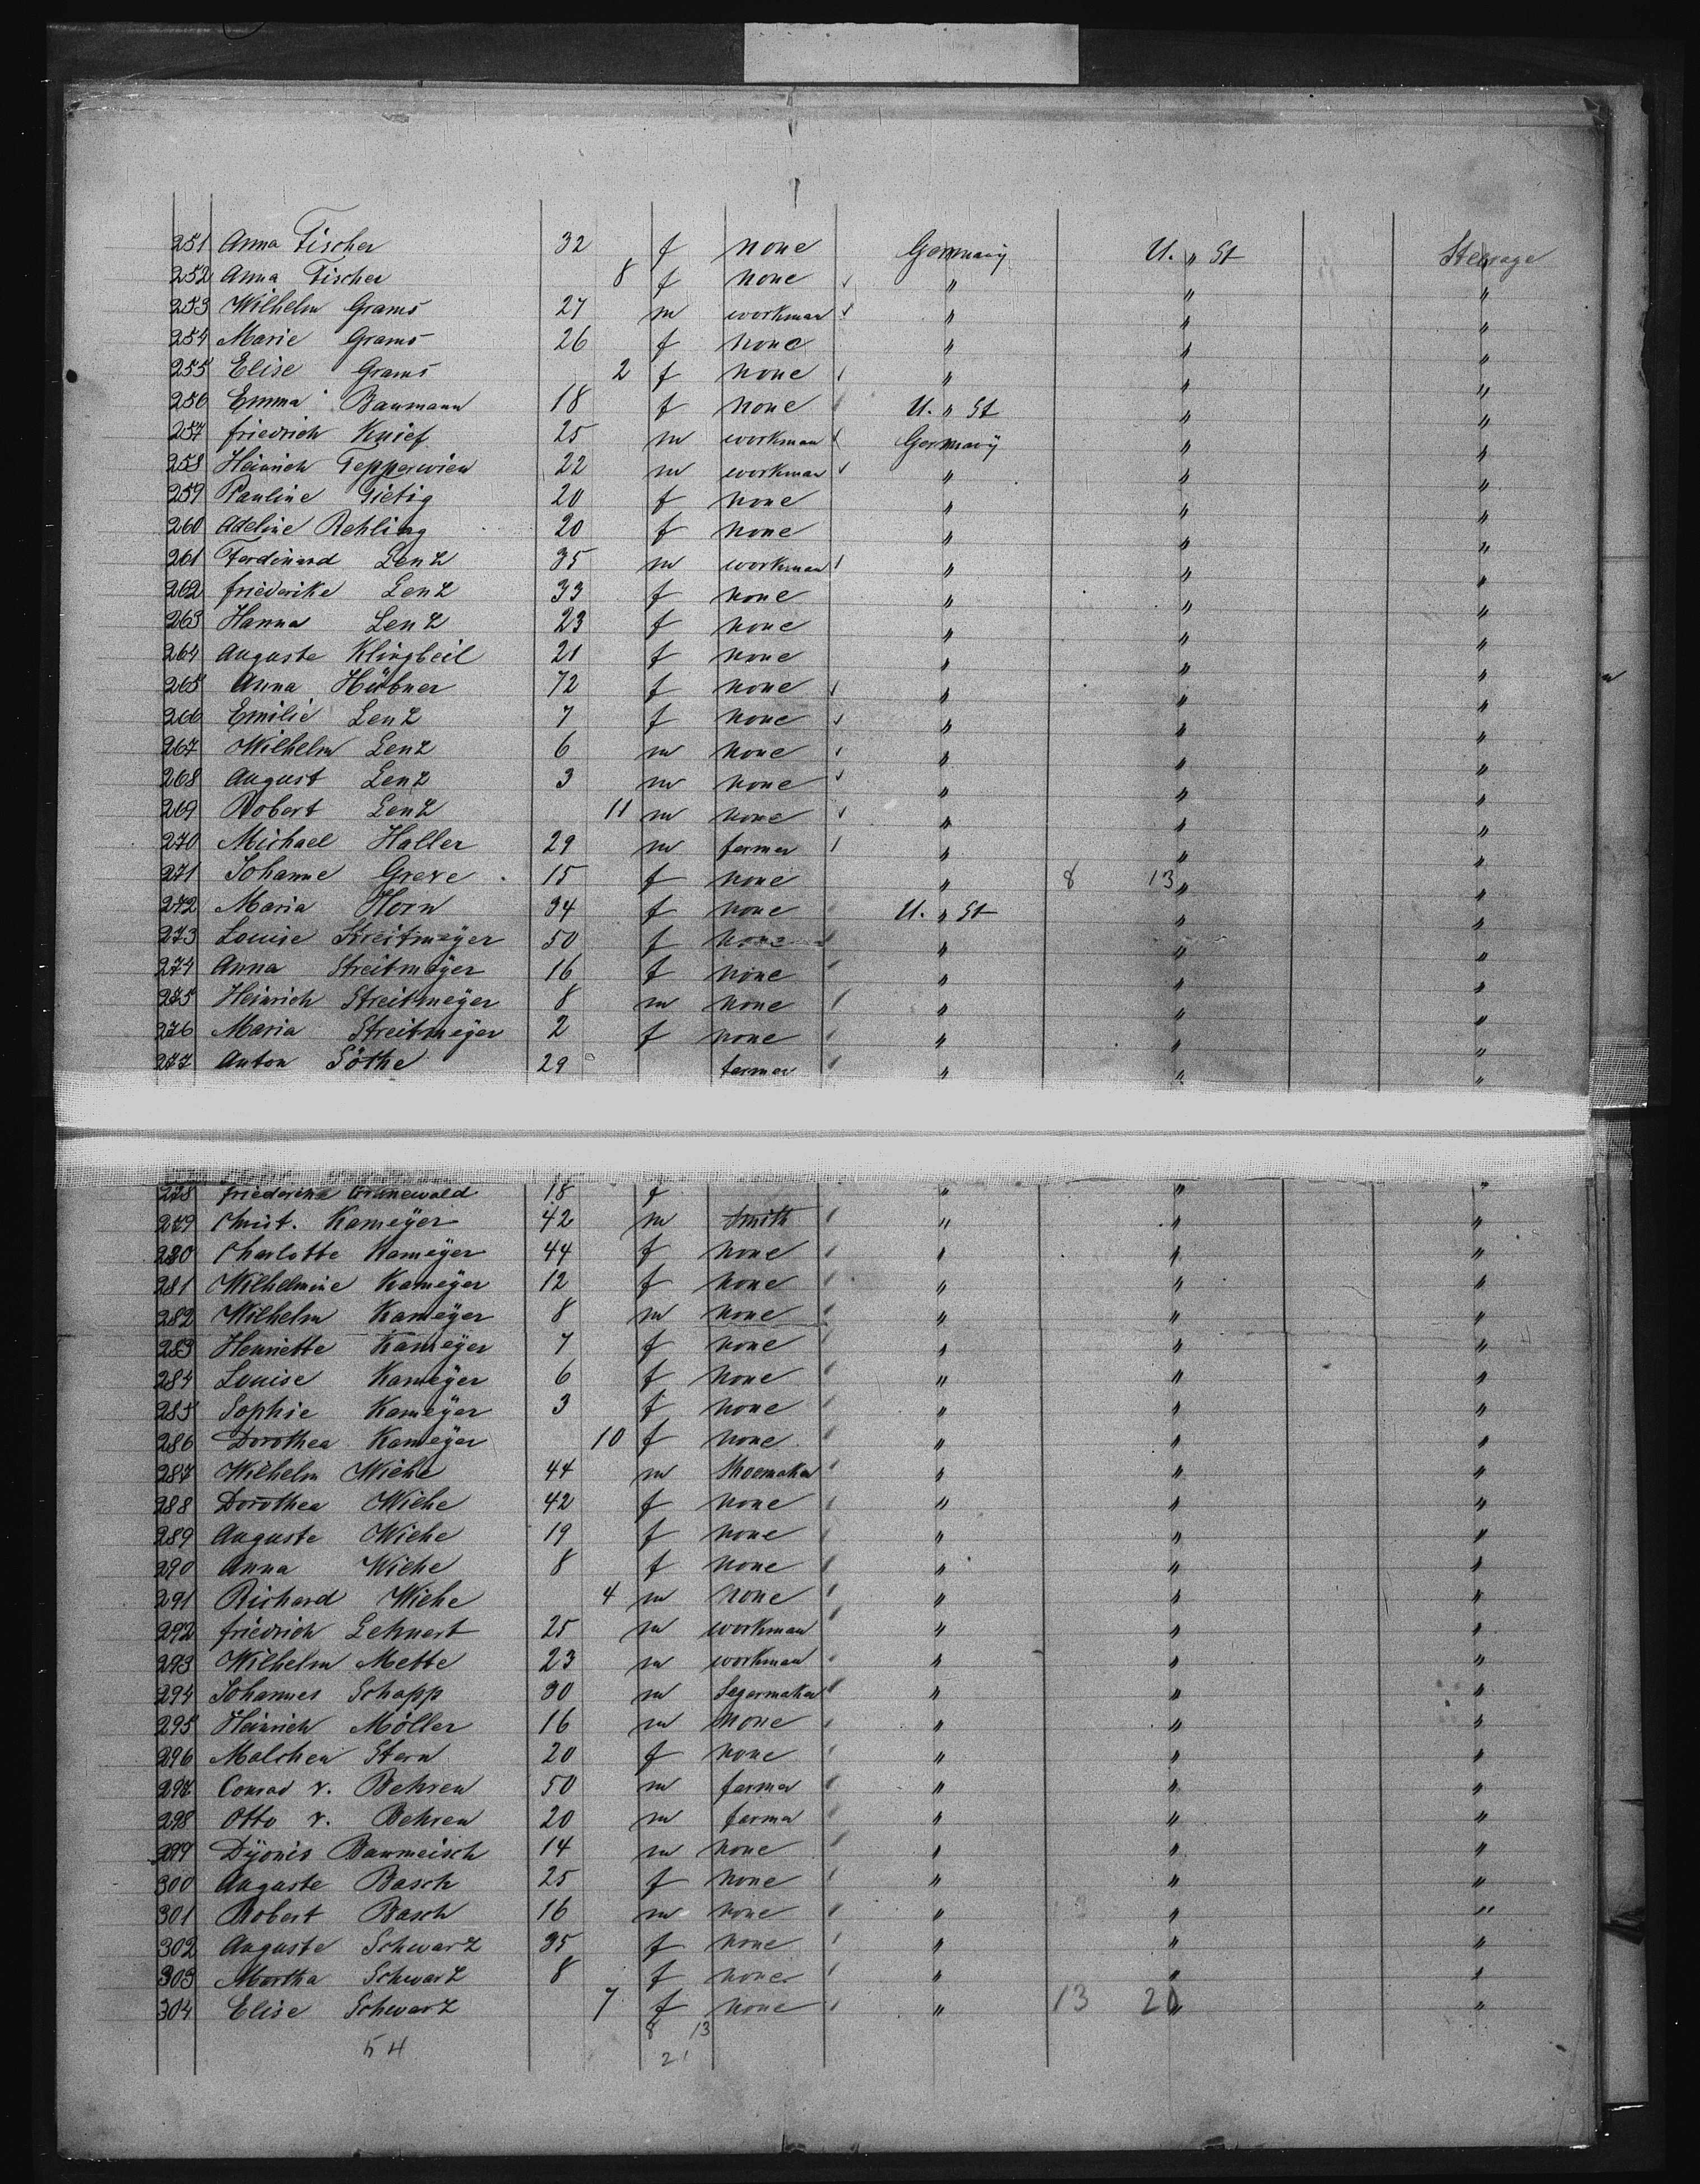 251 Anna Fischer 32 f none Germany U. " St Steerage
252 Anna Fischer 8 f none " " "
253 Wilhelm Grams 27 m workman " " "
254 Marie Grams 26 f none " " "
255 Elise Grams 2 f none " " "
256 Emma Baumann 18 f none U. " St " "
257 friedrich Knief 25 m workman Germany " "
258 Heinrich Tepperwien 22 m workman " " "
259 Pauline Gietig 20 f none " " "
260 Adeline Rehling 20 f none " " "
261 Ferdinand Lenz 35 m workman " " "
262 friederike Lenz 33 f none " " "
263 Hanna Lenz 23 f none " " "
264 Auguste Klingbeil 21 f none " " "
265 Anna Hübner 72 f none " " "
266 Emilie Lenz 7 f none " " "
267 Wilhelm Lenz 6 m none " " "
268 August Lenz 3 m none " " "
269 Robert Lenz 11 m none " " "
270 Michael Haller 29 m farmer " " "
271 Johanne Greve 15 f none " 8 13 " "
272 Maria Horn 34 f none U. " St " "
273 Louise Streitmeÿer 50 f none " " "
274 Anna Streitmeÿer 16 f none " " "
275 Heinrich Streitmeÿer 8 m none " " "
276 Maria Streitmeÿer 2 f none " " "
277 Anton Söthe 29 farmer " " "
278 friederike Grunewald 18 f " " "
279 Christ. Kameÿer 42 m Smith " " "
280 Charlotte Kameÿer 44 f none " " "
281 Wilhelmine Kameÿer 12 f none " " "
282 Wilhelm Kameÿer 8 m none " " "
283 Henriette Kameÿer 7 f none " " "
284 Louise Kameÿer 6 f none " " "
285 Sophie Kameÿer 3 f none " " "
286 Dorothea Kameÿer 10 f none " " "
287 Wilhelm Wiehe 44 m Shoemaker " " "
288 Dorothea Wiehe 42 f none " " "
289 Auguste Wiehe 19 f none " " "
290 Anna Wiehe 8 f none " " "
291 Richard Wiehe 4 m none " " "
292 friedrich Lehnert 25 m workman " " "
293 Wilhelm Mette 23 m workman " " "
294 Johannes Schapp 30 m Segarmaker " " "
295 Heinrich Möller 16 m none " " "
296 Malchen Stern 20 f none " " "
297 Conrad v. Behren 50 m farmer " " "
298 Otto v. Behren 20 m farmer " " "
299 Dÿonis Baumeisch 14 m none " " "
300 Auguste Basch 25 f none " " "
301 Robert Basch 16 m none " " "
302 Auguste Schwarz 35 f none " " "
303 Martha Schwarz 8 f none " " "
304 Elise Schwarz 7 f none " 13 21 " "
8 13
54 21